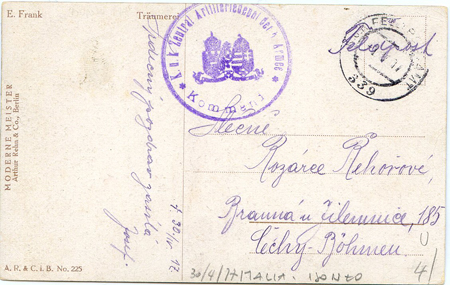 E. Frank
Träumerei
MODERNE MEISTER
Arthur Rehn & Co., Berlin
A. R. & C. i. B. No. 225
K.u.k. Zentral Artilleriedepot der 4. Armee
Kommando
Feldpost
339
Srdečný pozdrav zasílá
Josef
30/IV 17
Slečně
Rozárce Řehořové,
Branná u Jilemnice, 185
Čechy-Böhmen
30/4/17 ITALIA. ISONZO
4/